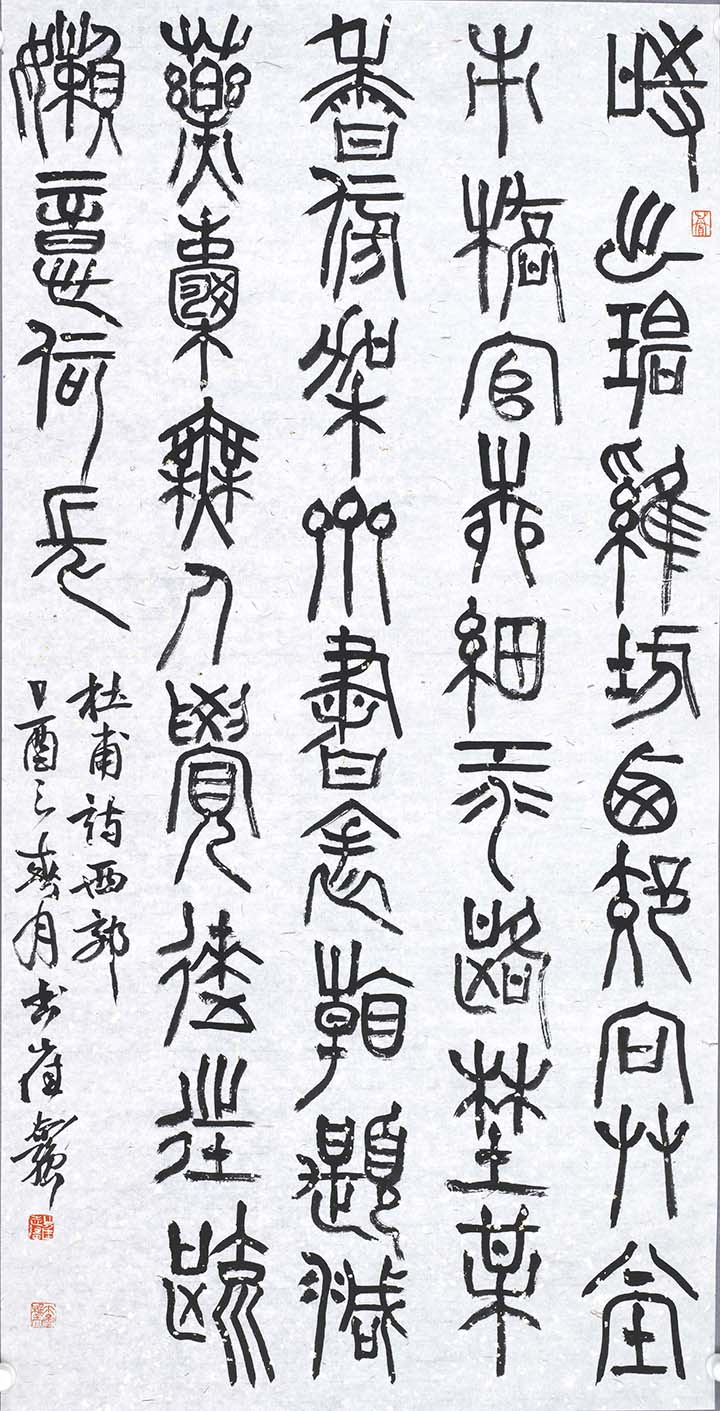 時出碧雞坊西郊向艸堂
市橋官柳細江路埜某
香傍架齊書帙看題減
藥囊無人覺徠往疏
嬾意何長
杜甫詩西郊
酉之 月書崔